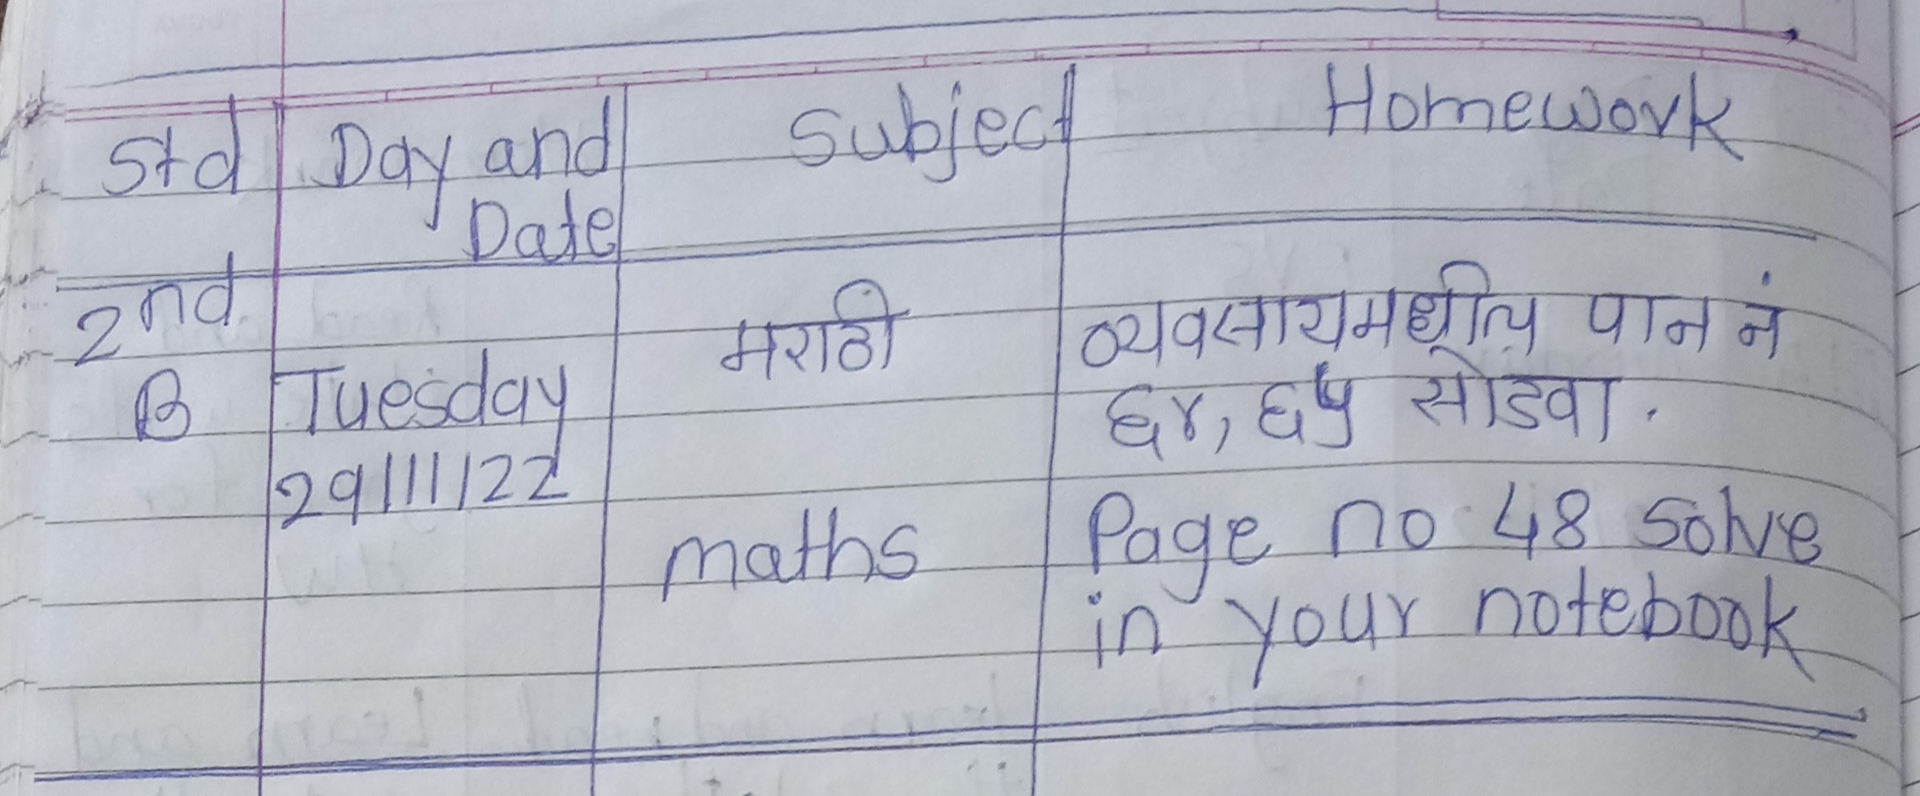 Std Day and Date Subject Homework
2nd B Tuesday 29/11/22 मराठी व्यवसायमधील पान नं
६४, ६५ सोडवा.
maths Page no 48 solve
in your notebook